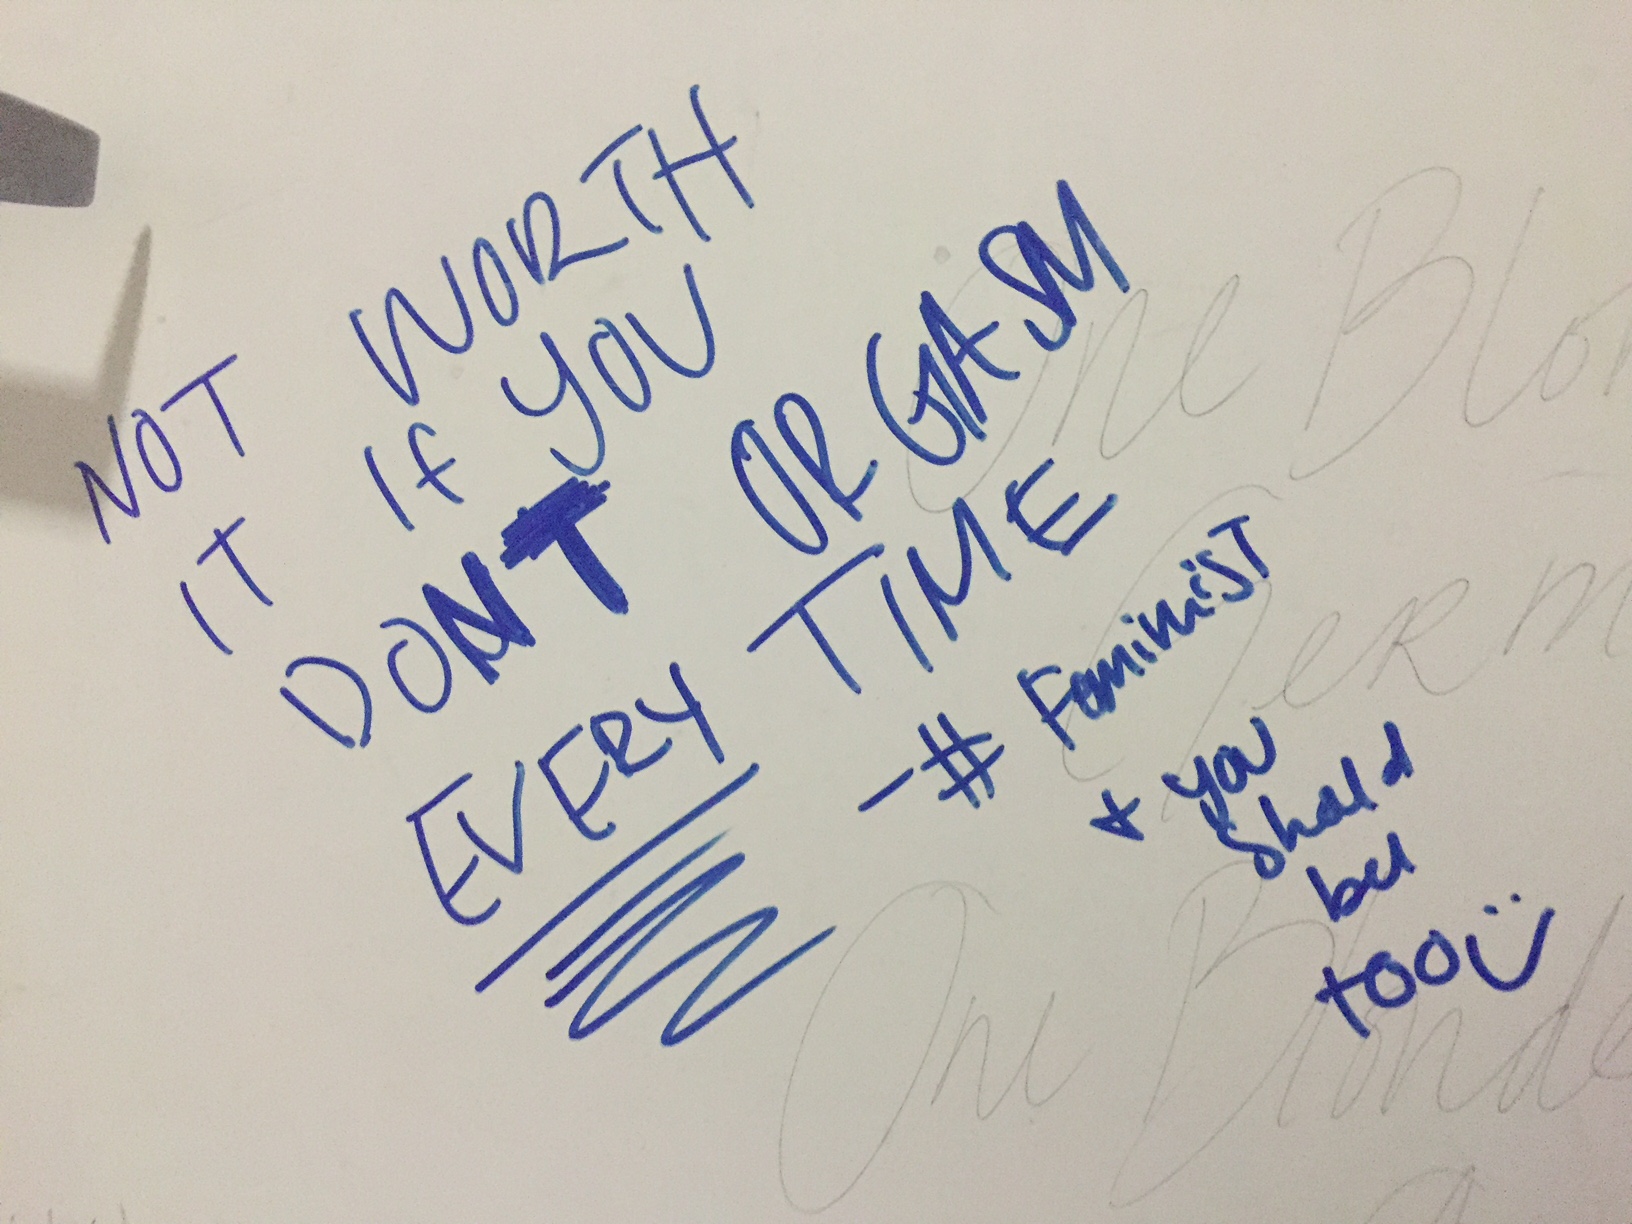 NOT WORTH
IT If YOU
DON'T ORGASM
EVERY TIME
-# Feminist
& you
should
be
too
One Blon
One Blonde